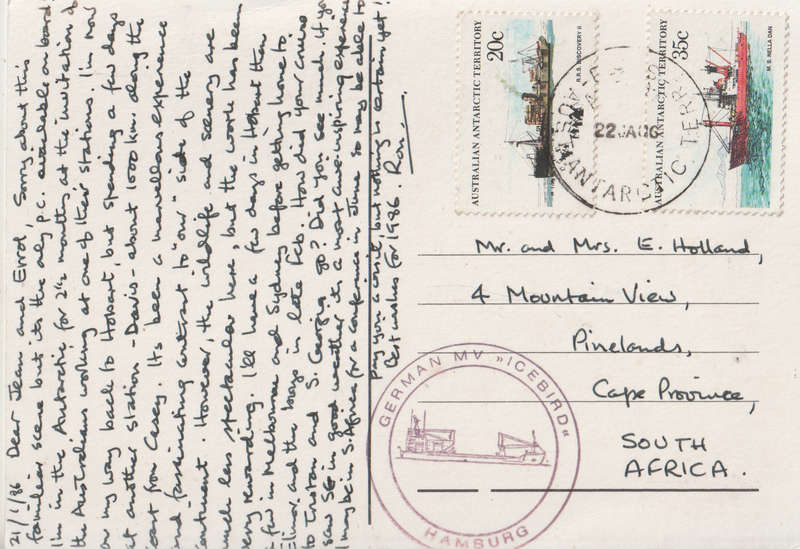 21/1/86 Dear Jean and Errol, Sorry about this
familiar scene but its the only p.c. available on board.
I'm in the Antarctic for 2½ months at the invitation of
the Australians working at one of their stations. I'm now
on my way back to Hobart, but spending a few days
at another station - Davis - about 1000 km along the
coast from Casey. Its been a marvellous experience
and fascinating contrast to "our" side of the
continent. However, the wildlife and scenery are
much less spectacular here, but the work has been
very rewarding. I'll have a few days in Hobart then
a few in Melbourne and Sydney before getting home to
Elinor and the boys in late Feb. How did your cruise
to Tristan and S. Georgia go? Did you see much. If you
saw SG in good weather its a most awe-inspiring experience
I may be in S. Africa for a conference in June so may be able to
pay you a visit, but nothing is certain yet!
Best wishes for 1986. Ron.
20c
R.R.S. DISCOVERY II
AUSTRALIAN ANTARCTIC TERRITORY
35c
M.S. NELLA DAN
AUSTRALIAN ANTARCTIC TERRITORY
22 JA
ANTARCTIC TERR
Mr. and Mrs. E. Holland,
4 Mountain View,
Pinelands,
Cape Province,
SOUTH
AFRICA.
GERMAN MV »ICEBIRD«
HAMBURG